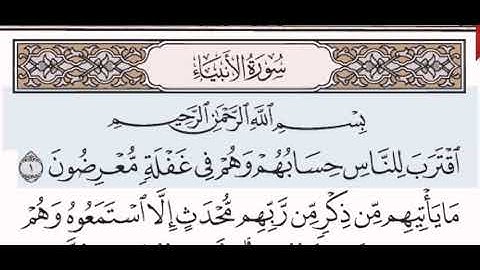 سُورَةُ الأَنبيَاءِ
بِسْمِ ٱللَّهِ ٱلرَّحْمَٰنِ ٱلرَّحِيمِ
ٱقْتَرَبَ لِلنَّاسِ حِسَابُهُمْ وَهُمْ فِى غَفْلَةٍ مُّعْرِضُونَ ١
مَا يَأْتِيهِم مِّن ذِكْرٍ مِّن رَّبِّهِم مُّحْدَثٍ إِلَّا ٱسْتَمَعُوهُ وَهُمْ